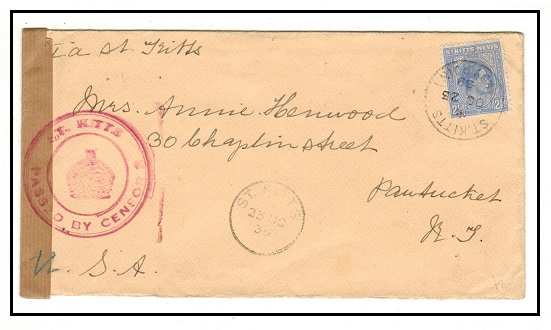 Via St. Kitts
ST. KITTS-NEVIS
2½
ST. KITTS
OC 23
39
Mrs. Annie Henwood
30 Chaplin street
Pawtucket
R. I.
U. S. A.
ST. KITTS
PASSED BY CENSOR
ST. KITTS
23 OC
39